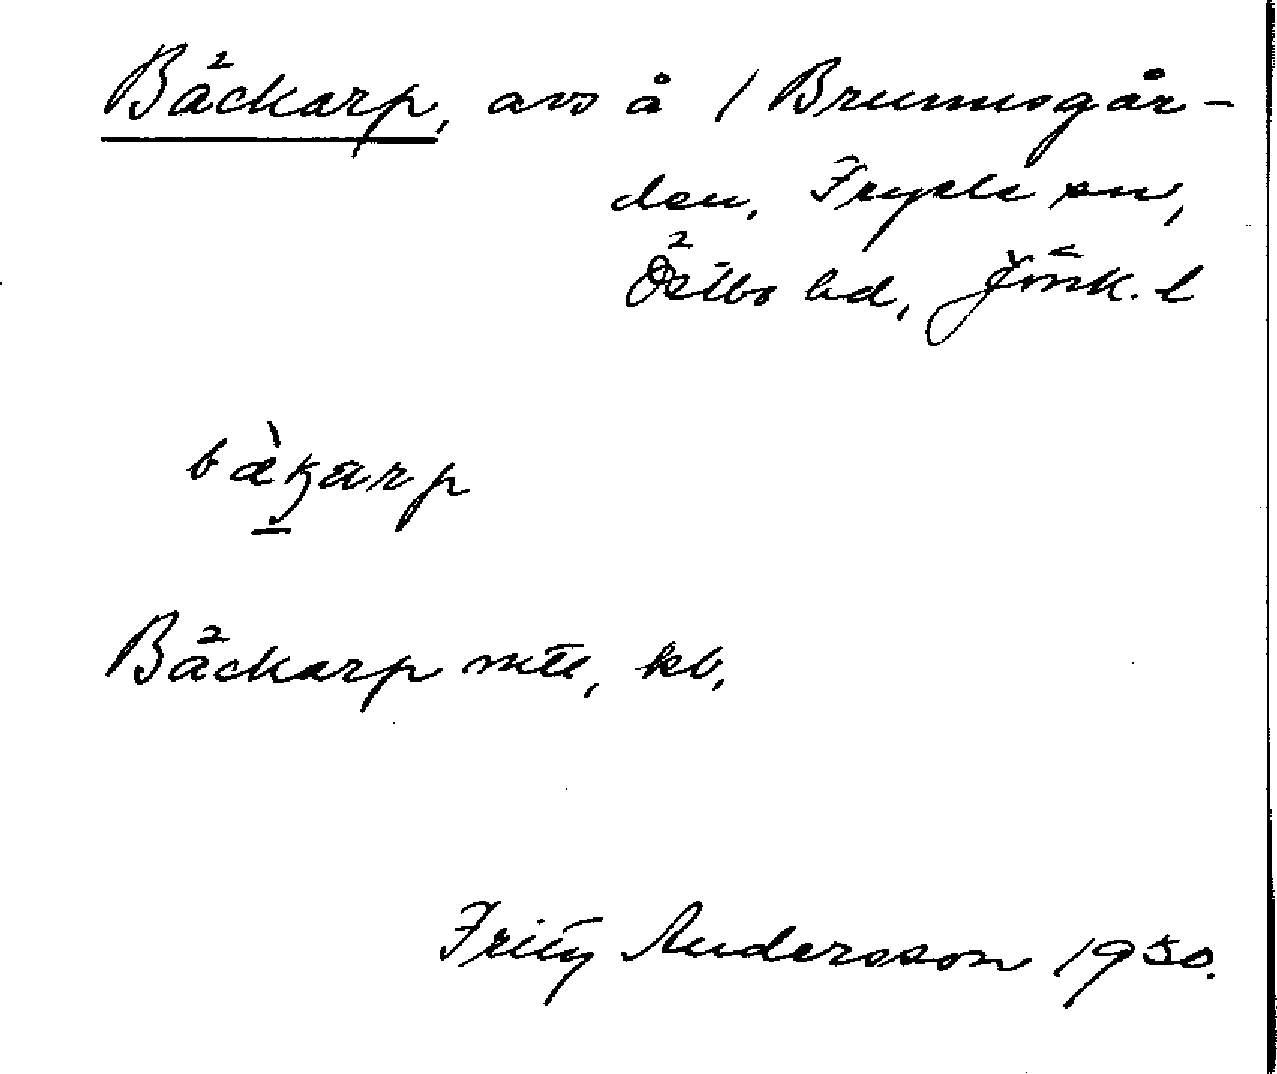 Bäckarp, avs å 1 Brunnsgår-
den, Fryele sn,
Östbo hd, Jönk. l
bækarp
Bäckarp mtl, kb,
Fritz Andersson 1930.